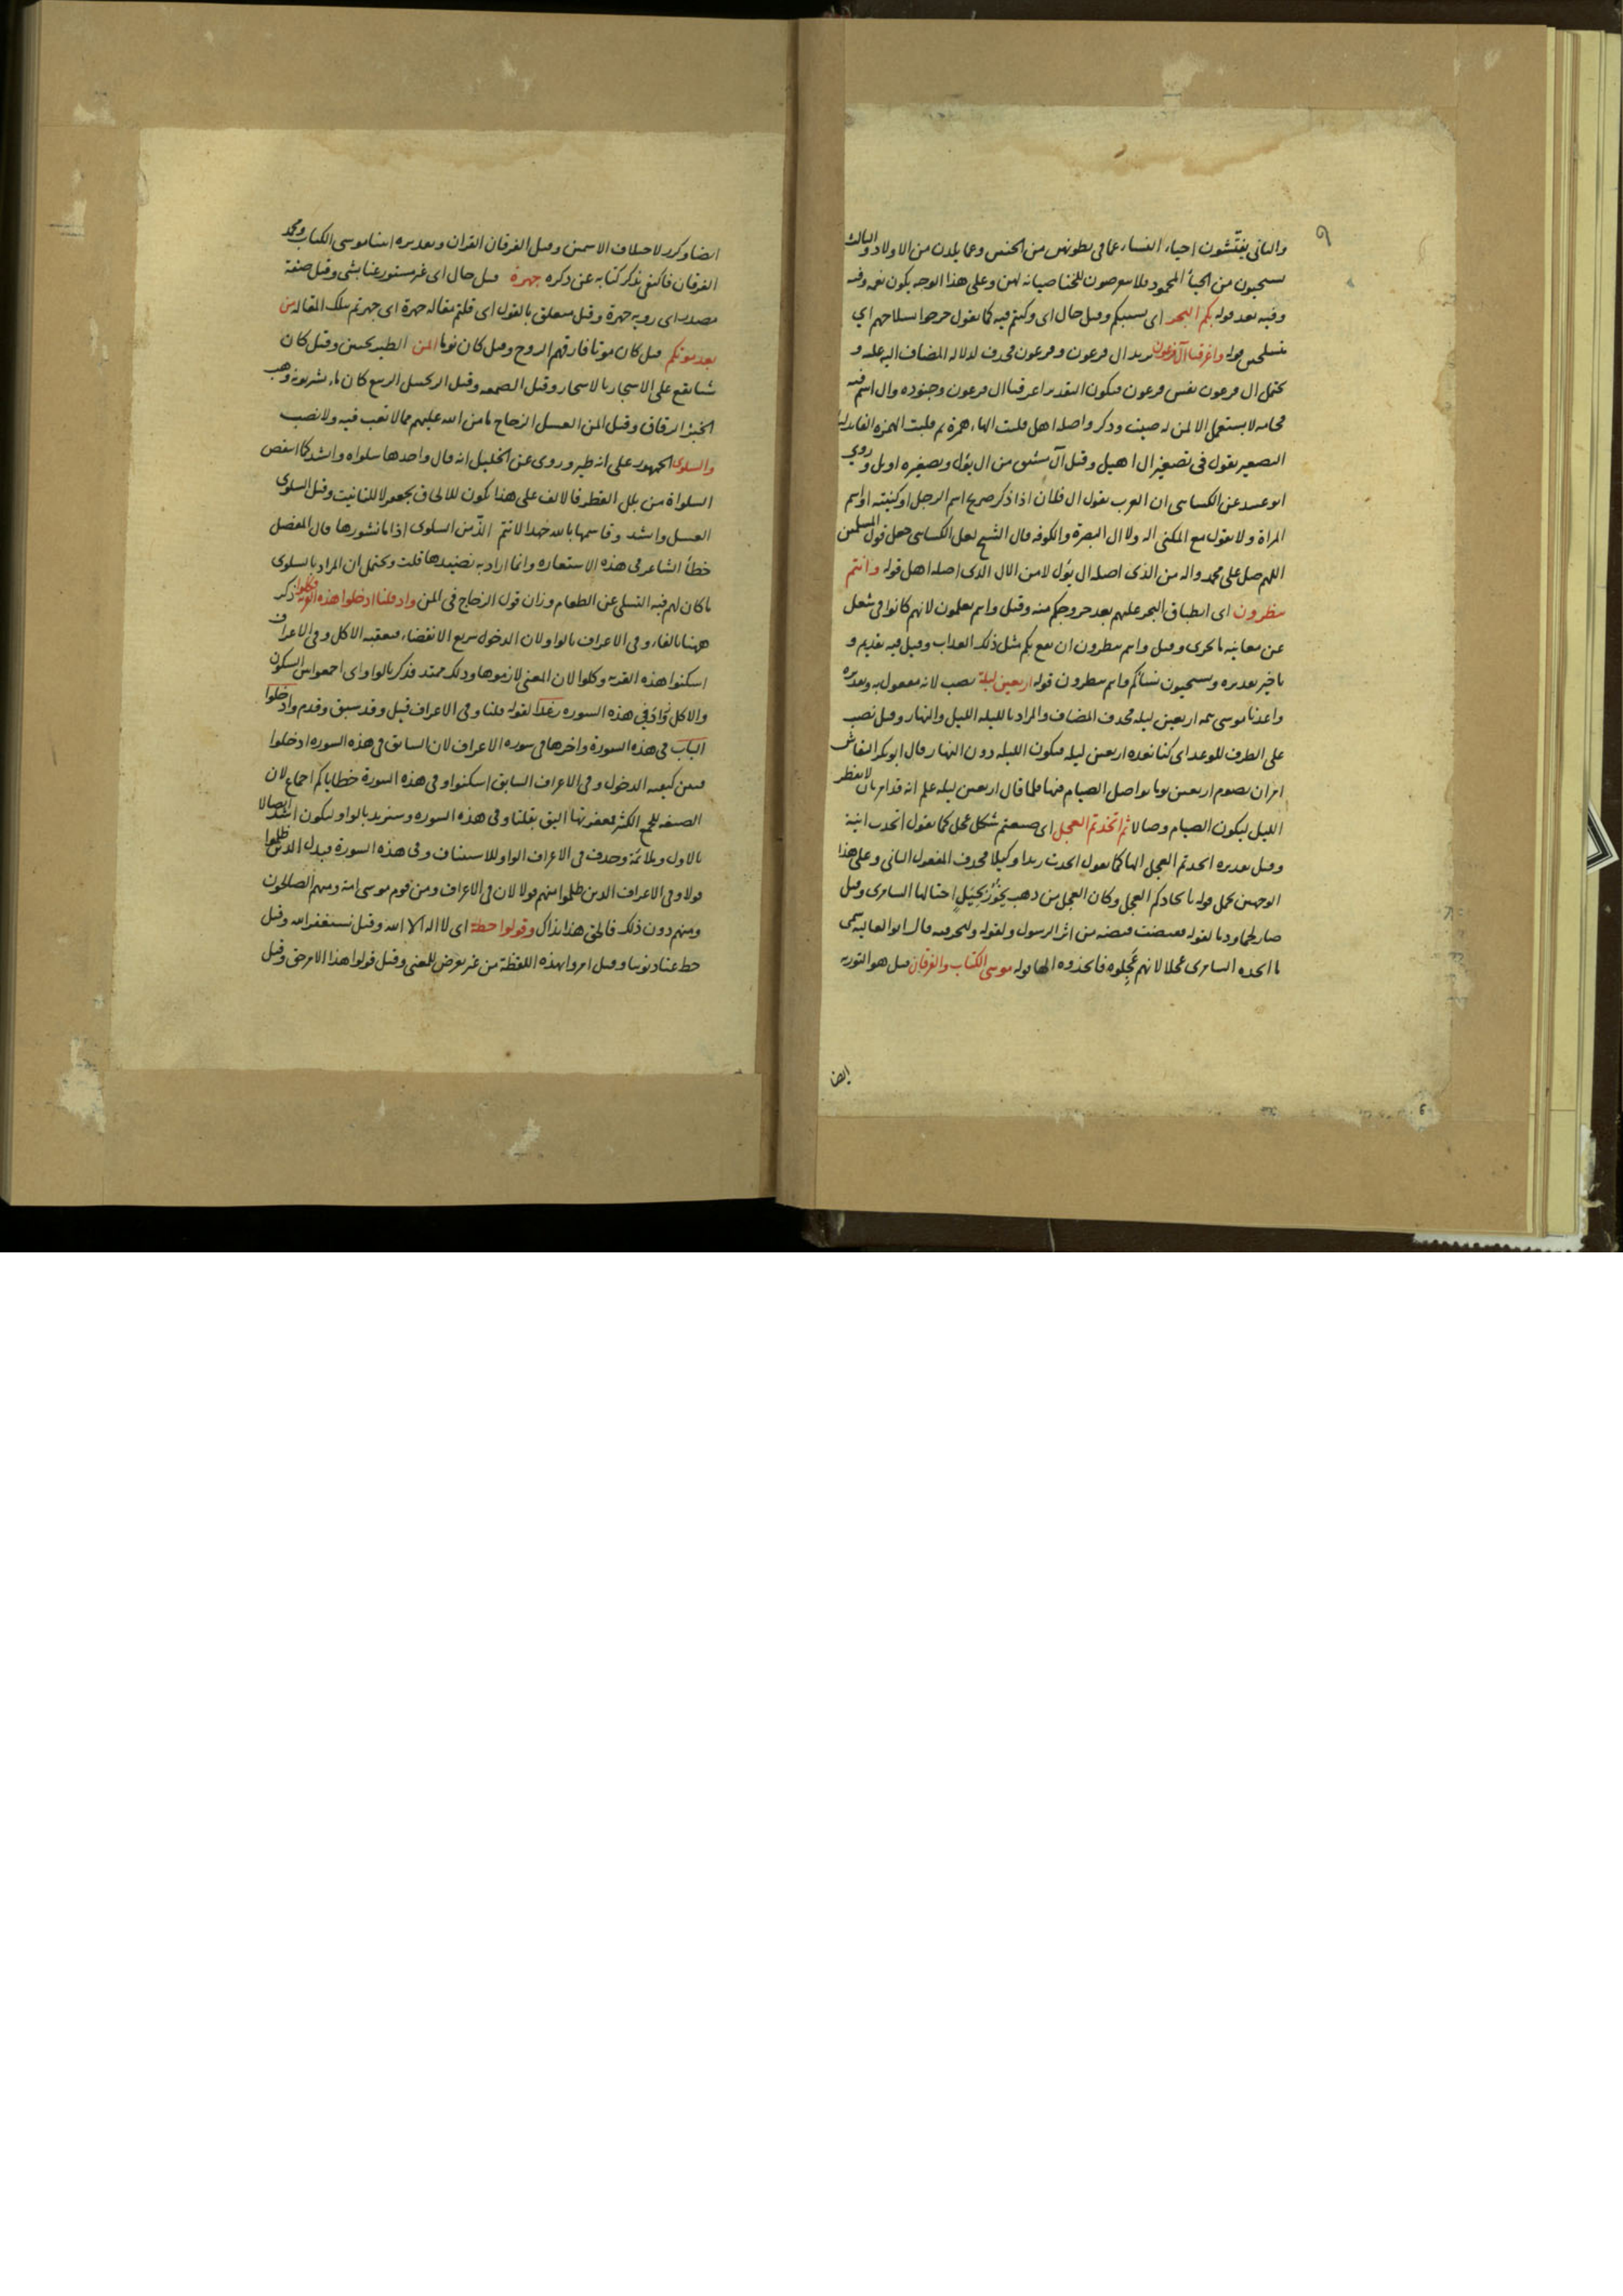 ٩
والثاني يفتشون احياء النساء عما في بطونهن من الجنس وعما يلدن من الاولاد والثالث
يستحيون من الحياء المحمود فلا يتعرضون للخنا صيانة لهن وعلى هذا الوجه يكون نعمة وفيه
وفيه بعد قوله بكم البحر اى بسببكم وقيل حال اى وكنتم فيه كما يقول خرجوا بسلاحهم اي
متسلحين قوله واغرقنا آل فرعون يريد ال فرعون وفرعون فحذف لدلالة المضاف اليه عليه و
يحتمل ال فرعون نفس فرعون فيكون التقدير اغرقنا ال فرعون وجنوده وال اسم فيه
فخامة لا يستعمل الا لمن له صيت وذكر واصله اهل قلبت الهاء همزة ثم قلبت الهمزة الفا
التصغير يقول في تصغير ال اهيل وقيل آل مشتق من ال يؤل وتصغيره اويل وروي
ابو عبيد عن الكسائى ان العرب يقول ال فلان اذا ذكر صريح اسم الرجل او كنيته او اسم
المراة ولا يقول مع المكنى اله ولا ال البصرة والكوفه قال الشيخ لعل الكسائى جعل قول المسلمين
اللهم صل على محمد واله من الذى اصله ال يؤل لا من الال الذى اصله اهل قوله وانتم
تنظرون اى انطباق البحر عليهم بعد خروجكم منه وقيل وانتم تعلمون لانهم كانوا في شغل
عن معاينة ما يجرى وقيل وانتم تنظرون ان يقع بكم مثل ذلك العذاب وقيل فيه تقديم و
تاخير تقديره ويستحيون نسائكم وانتم تنظرون قوله اربعين ليلة نصب لانه مفعول به وتقديره
واعدنا موسى تتمة اربعين ليلة فحذف المضاف والمراد بالليلة الليل والنهار وقيل نصب
على الظرف للوعد اى كنا نعده اربعين ليلة فيكون الليلة دون النهار قال ابو بكر النقاش
امر ان يصوم اربعين يوما يواصل الصيام فيها فلما قال اربعين ليلة علم انه قد امر بان لا يفطر
الليل ليكون الصيام وصالا ثم اتخذتم العجل اى صنعتم شكل عجل كما يقول اتخذت انية
وقيل تقديره اتخذتم العجل الها كما يقول اتخذت زيدا وكيلا فحذف المفعول الثاني وعلى هذا
الوجهين يحمل قوله باتخاذكم العجل وكان العجل من ذهب يخور بحيل احتالها السامرى وقيل
صار لحما ودما لقوله فقبضت قبضة من اثر الرسول ولقوله ولنحرقنه قال ابو العالية سمى
ما اتخذه السامرى عجلا لانهم عجلوه فاتخذوه الها قوله موسى الكتاب والفرقان قيل هو التورية
ايضا
ايضا وكرر لاختلاف الاسمين وقيل الفرقان القران وتقديره اتينا موسى الكتاب ومحمد
الفرقان فاكتفى بذكر كتابه عن ذكره جهرة قيل حال اى غير مستور عنا بشى وقيل صفة
مصدر اى روية جهرة وقيل متعلق بالقول اى قلتم مقالة جهرة اى جهرتم بتلك المقالة من
بعد موتكم قيل كان موتا فارقهم الروح وقيل كان نوما المن الطبر نجبين وقيل كان
شيئا يقع على الاشجار بالاسحار وقيل الصمغة وقيل الزنجبيل الربيع كان ماء يشربونه وهب
الخبز الرقاق وقيل المن العسل الزجاج ما من الله عليهم مما لا تعب فيه ولا نصب
والسلوى الجمهور على انه طير وروى عن الخليل انه قال واحدها سلواه وانشد كما انتفض
السلواة من بلل القطر فالالف على هذا يكون للالحاق بجعفر لا للتانيث وقيل السلوى
العسل وانشد وقاسمها بالله جهدا لانتم الذ من السلوى اذا ما نشورها قال المفضل
خطأ الشاعر في هذه الاستعارة وانما اراد به قلت ويحتمل ان المراد بالسلوى
ما كان لهم فيه التسلى عن الطعام وزان قول الزجاج في المن واذ قلنا ادخلوا هذه القرية فكلوا ذكر
ههنا بالفاء وفي الاعراف بالواو لان الدخول سريع الانقضاء فيعقبه الاكل وفي الاعراف
اسكنوا هذه القرية وكلوا لان المعنى لازموها وذلك ممتد فذكر بالواو اى اجمعوا بين السكون
والاكل وزاد في هذه السورة رغدا لقوله قلنا وفي الاعراف قيل وقد سبق وقدم وادخلوا
الباب في هذه السورة واخرها في سورة الاعراف لان السابق في هذه السورة ادخلوا
فبين كيفية الدخول وفي الاعراف السابق اسكنوا وفي هذه السورة خطاياكم اجماع لان
الصيغة للجمع الكثير فمغفرتها اليق بقلنا وفي هذه السورة وسنزيد بالواو ليكون اشد اتصالا
بالاول وملائمة وحذف في الاعراف الواو للاستيناف وفي هذه السورة فبدل الذين ظلموا
قولا وفي الاعراف الذين ظلموا منهم قولا لان في الاعراف ومن قوم موسى امة ومنهم الصالحون
ومنهم دون ذلك فالحق هذا بذاك وقولوا حطة اى لا اله الا الله وقيل نستغفر الله وقيل
حط عنا ذنوبنا وقيل امروا بهذه اللفظة من غير تعرض للمعنى وقيل قولوا هذا الامر حق وقيل